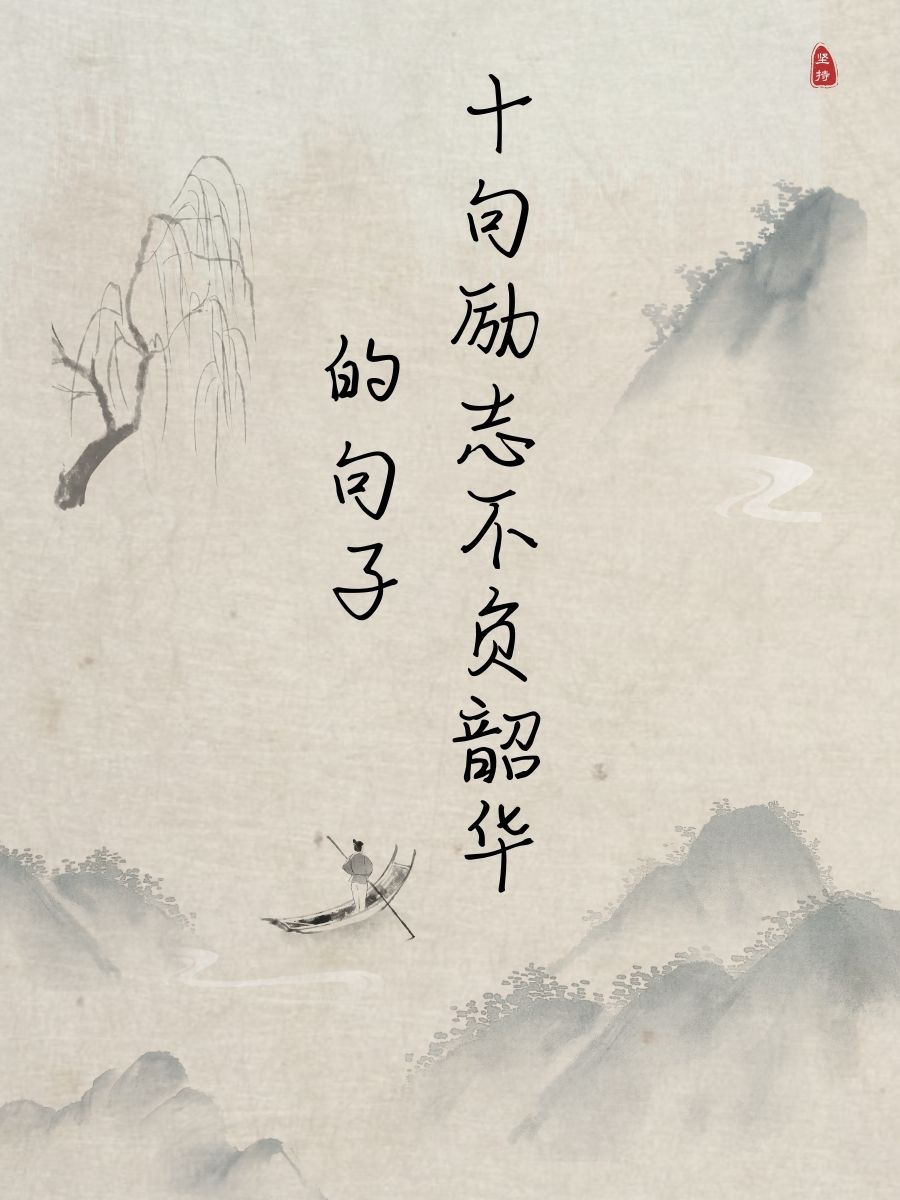 十句励志不负韶华
的句子
坚持